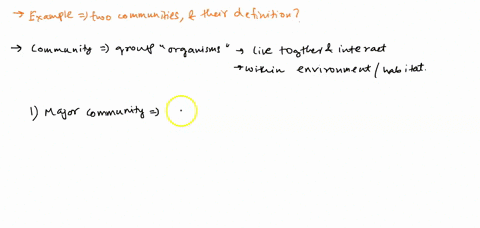 → Example => two communities, & their definition?
→ Community => group "organisms" → live togther & interact
→ within environment / habitat.
1) Major community =>